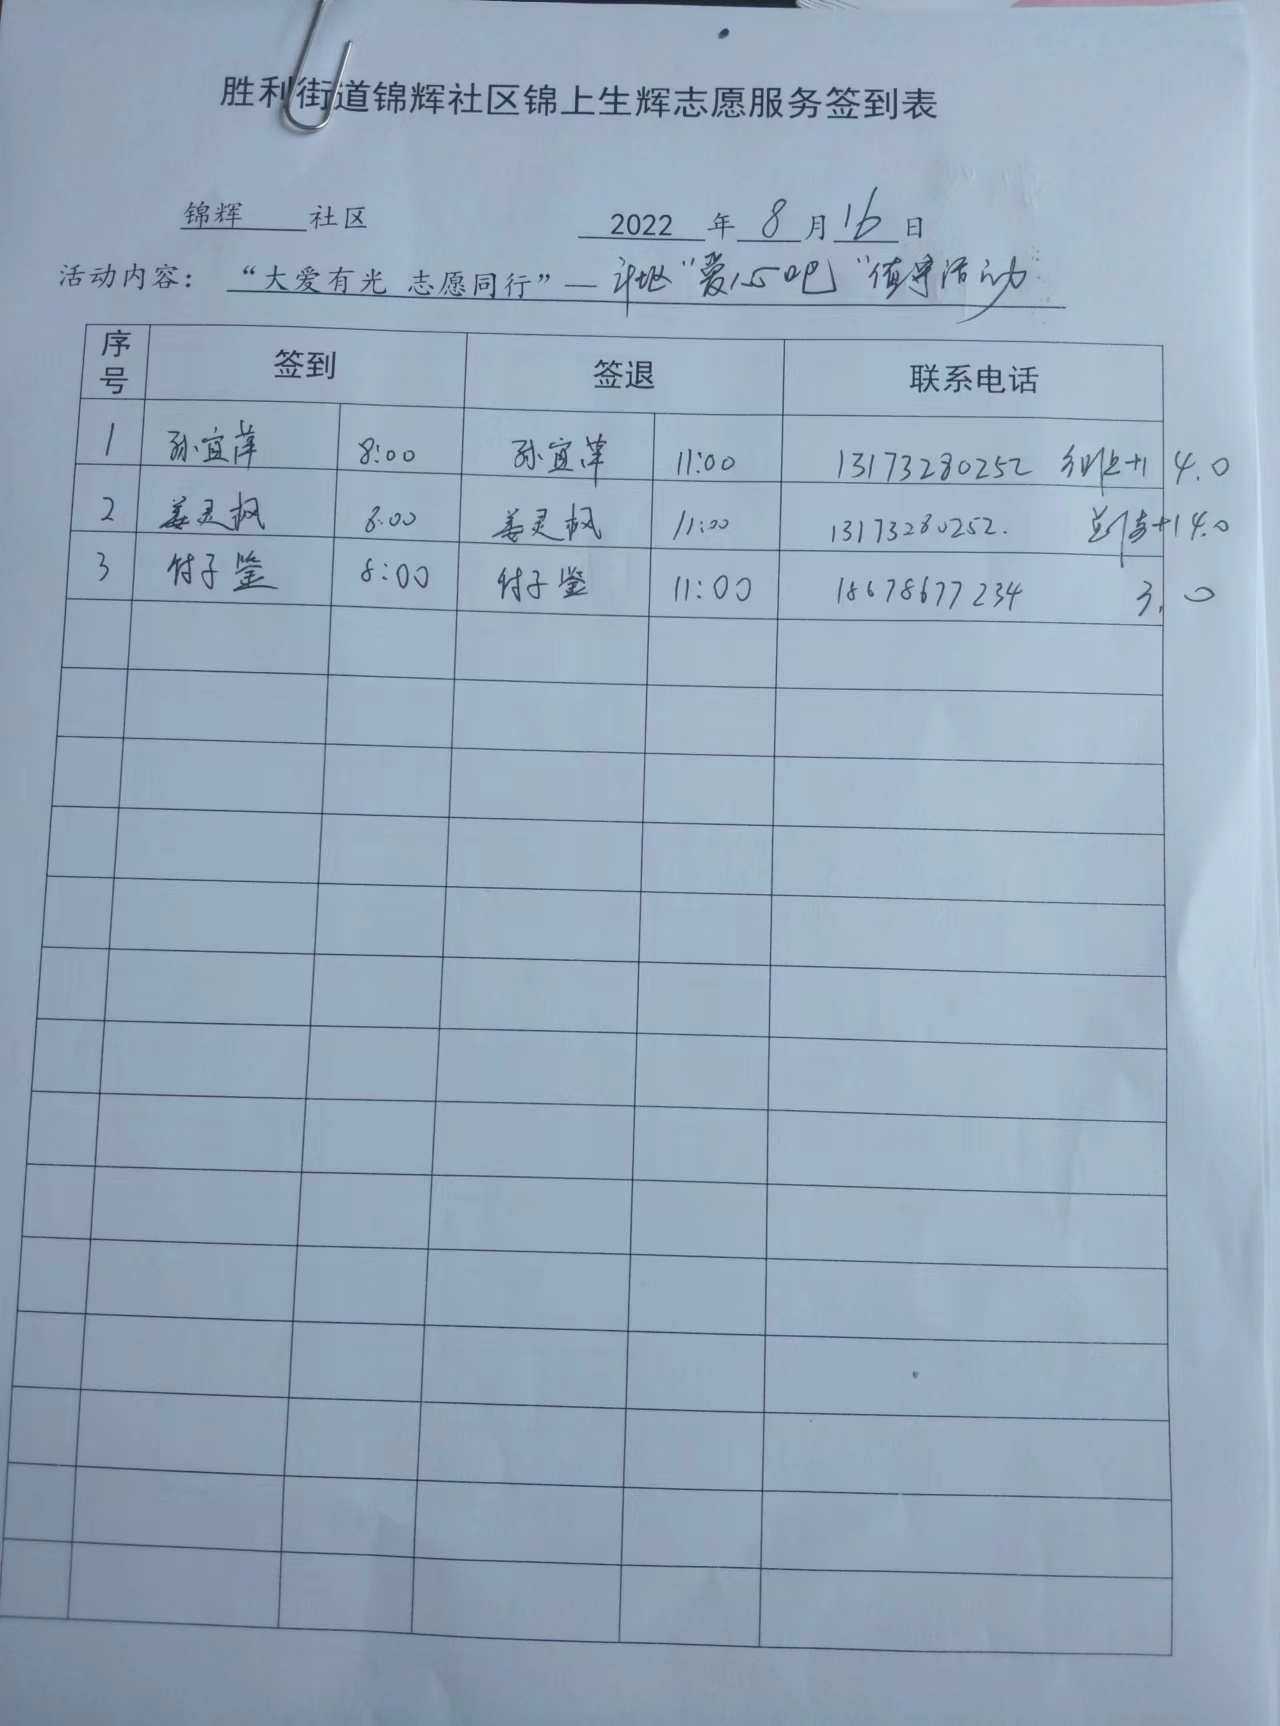 胜利街道锦辉社区锦上生辉志愿服务签到表
锦辉 社区 2022 年 8 月 16 日
活动内容： “大爱有光 志愿同行”— 社区“爱心吧”值守活动
序号 签到 签退 联系电话
1 孙宜萍 8:00 孙宜萍 11:00 13173280252 +1 4.0
2 姜灵枫 8:00 姜灵枫 11:00 13173280252. +1 4.0
3 付子鉴 8:00 付子鉴 11:00 18678677234 3.0